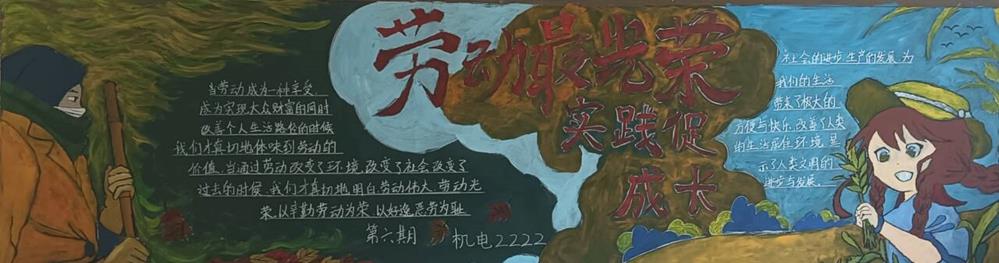 劳动最光荣
实践促
成长
当劳动成为一种享受
成为实现大众财富的同时
改善个人生活路径的时候
我们才真切地体味到劳动的
价值，当通过劳动改变了环境，改变了社会，改变了
过去的时候，我们才真切地明白劳动伟大，劳动光
荣，以辛勤劳动为荣，以好逸恶劳为耻
第六期 机电2222
社会的进步，生产的发展，为
我们的生活
带来了极大的
方便与快乐，改善了人类
的生活居住环境，显
示了人类文明的
进步与发展。